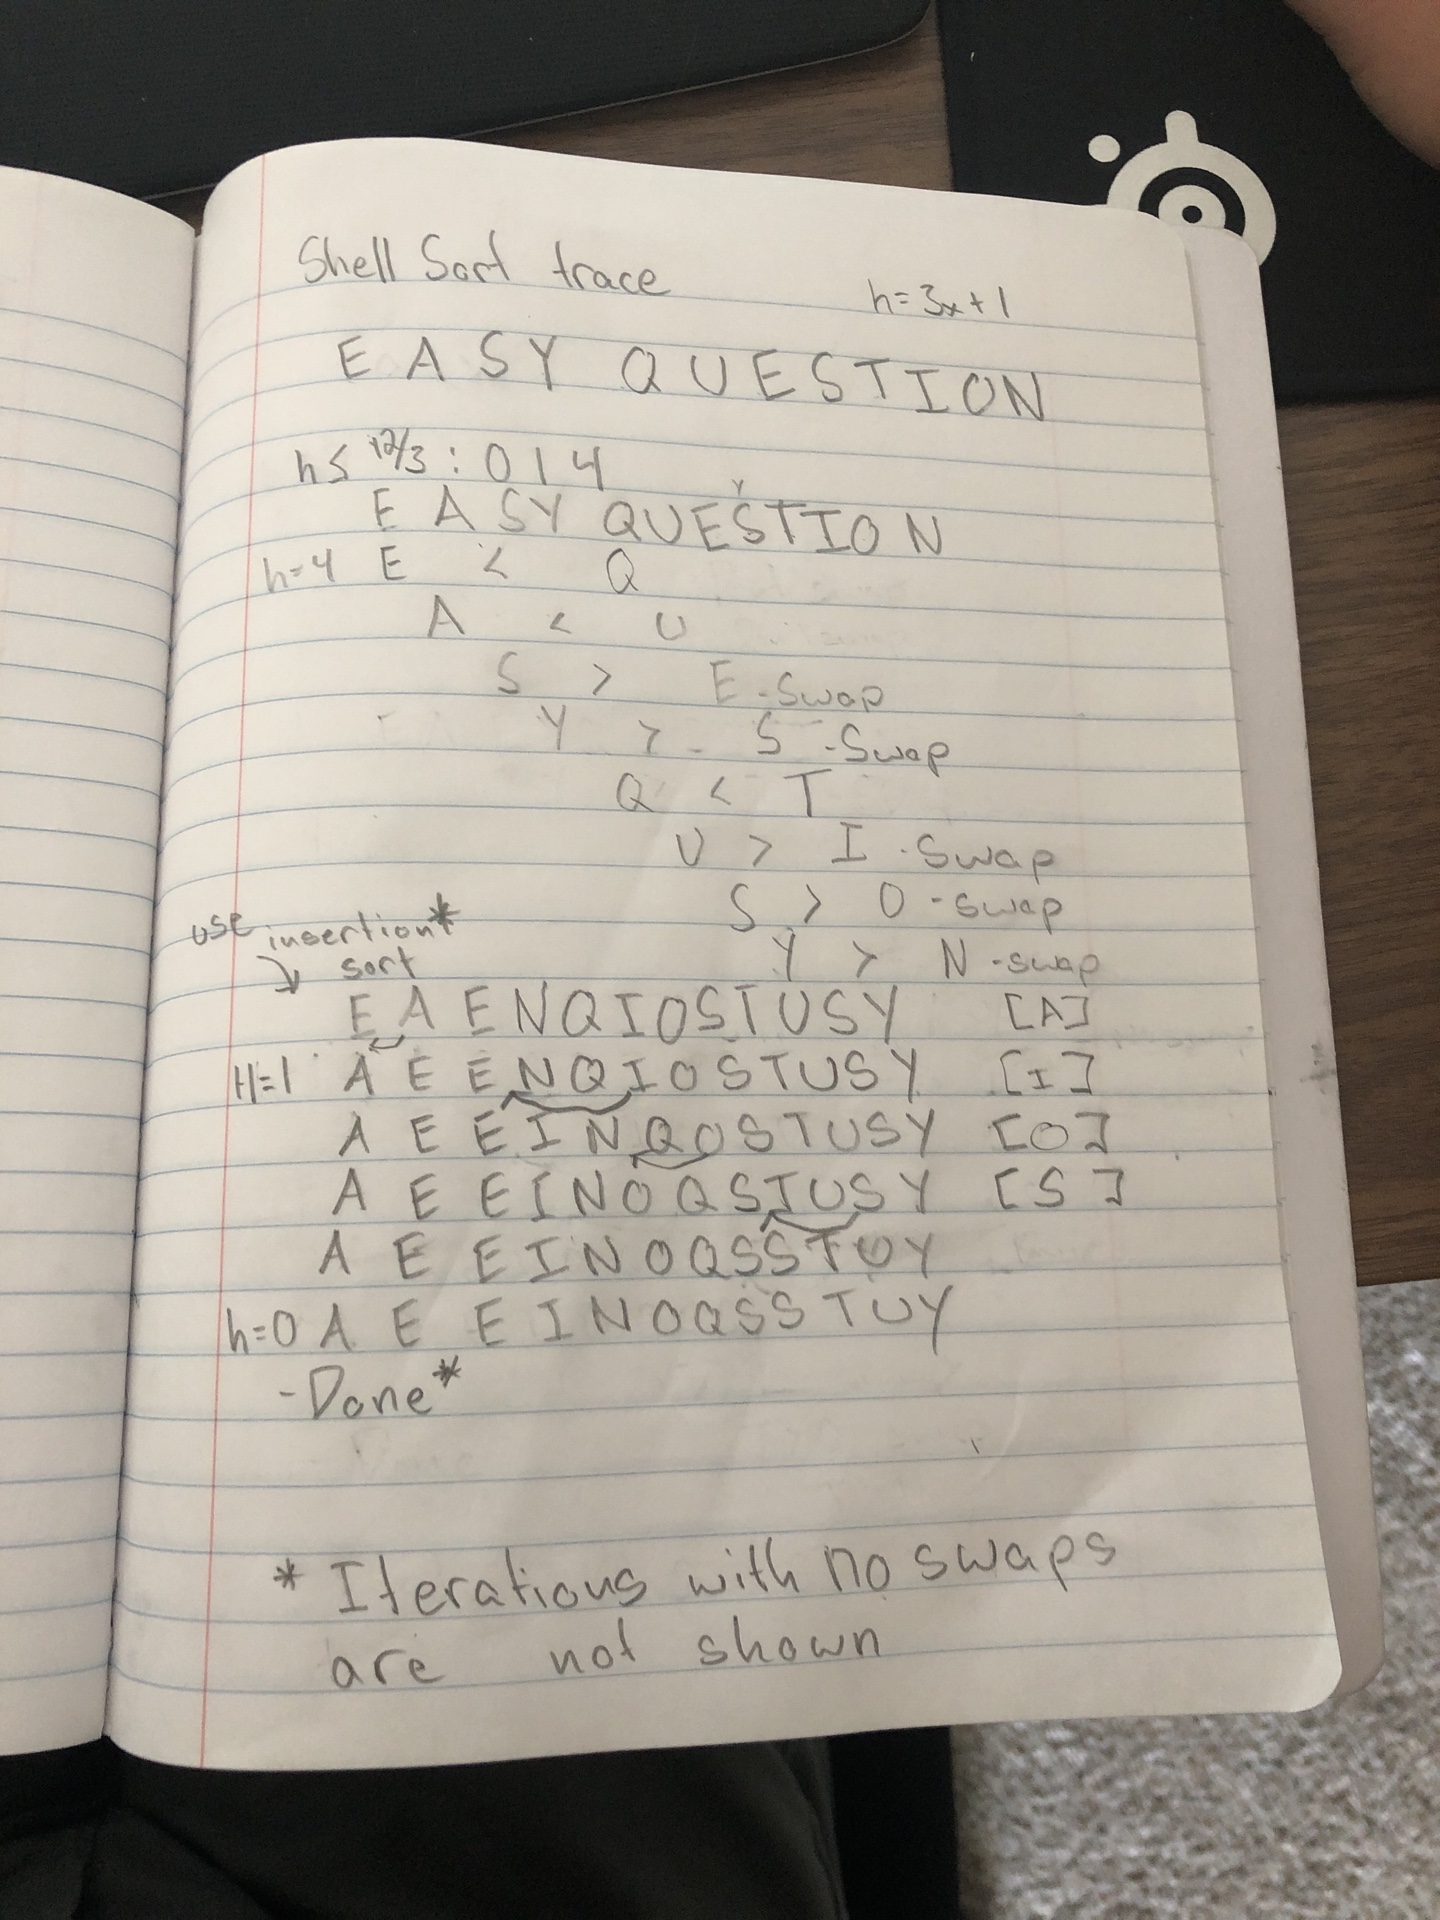 Shell Sort trace
h=3x+1
E A S Y Q U E S T I O N
h≤ 12/3 : 0 1 4
Y
E A S Y Q U E S T I O N
h=4 E < Q
A < U
S > E -Swap
Y > S -Swap
Q < T
U > I -Swap
S > O -swap
Y > N -swap
use insertion*
sort
E A E N Q I O S T U S Y [A]
H=1 A E E N Q I O S T U S Y [I]
A E E I N Q O S T U S Y [O]
A E E I N O Q S T U S Y [S]
A E E I N O Q S S T U Y
h=0 A E E I N O Q S S T U Y
-Done*
* Iterations with no swaps
are not shown